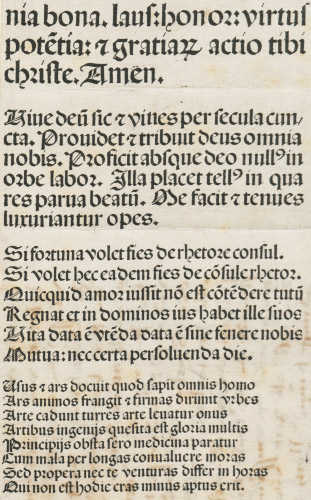 nia bona. laus: honor: virtus
potētia: ⁊ gratiaꝝ actio tibi
christe. Amen.
Uiue deū sic ⁊ viues per secula cun-
cta. Prouidet ⁊ tribuit deus omnia
nobis. Proficit absque deo nullꝰ in
orbe labor. Illa placet tellꝰ in qua
res parua beatū. Me facit ⁊ tenues
luxuriantur opes.
Si fortuna volet fies de rhetore consul.
Si volet hec eadem fies de cōsule rhetor.
Quicquid amor iussit nō est cōtēdere tutū
Regnat et in dominos ius habet ille suos
Uita data ē vtēda data ē sine fenere nobis
Mutua: nec certa persoluenda die.
Usus ⁊ ars docuit quod sapit omnis homo
Ars animos frangit ⁊ firmas dirimit vrbes
Arte cadunt turres arte leuatur onus
Artibus ingenijs quesita est gloria multis
Principijs obsta sero medicina paratur
Cum mala per longas conualuere moras
Sed propera nec te venturas differ in horas
Qui non est hodie cras minus aptus erit.